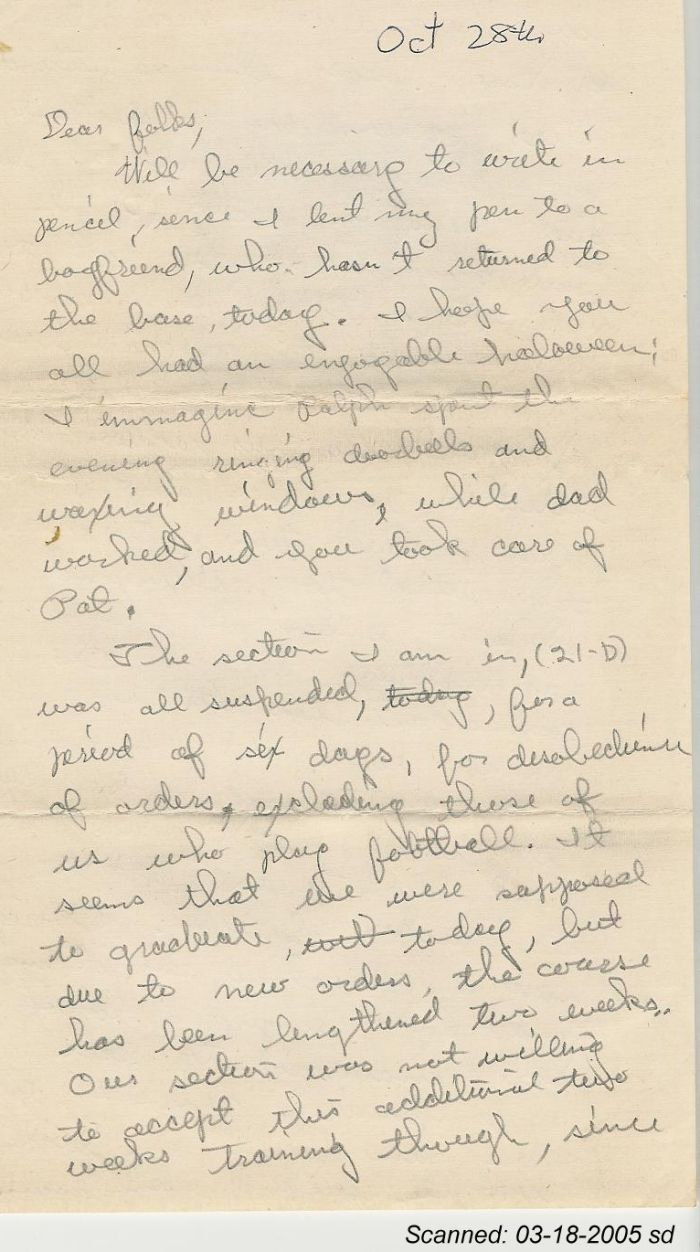 Oct 28th
Dear folks,
Will be necessary to write in
pencil, since I lent my pen to a
boyfriend, who hasn't returned to
the base, today. I hope you
all had an engogable haloween;
I immagine Ralph spent the
evening ringing doorbells and
waxing windows, while dad
worked, and you took care of
Pat.
The section I am in, (21-D)
was all suspended, today, for a
period of six days, for disobedience
of orders, excluding those of
us who play football. It
seems that we were supposed
to graduate, today, but
due to new orders, the course
has been lengthened two weeks.
Our section was not willing
to accept this additional two
weeks training though, since
Scanned: 03-18-2005 sd